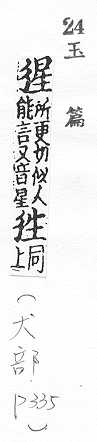 24 玉篇
猩所更切似人能言又音星狌同上
(犬部. P335)